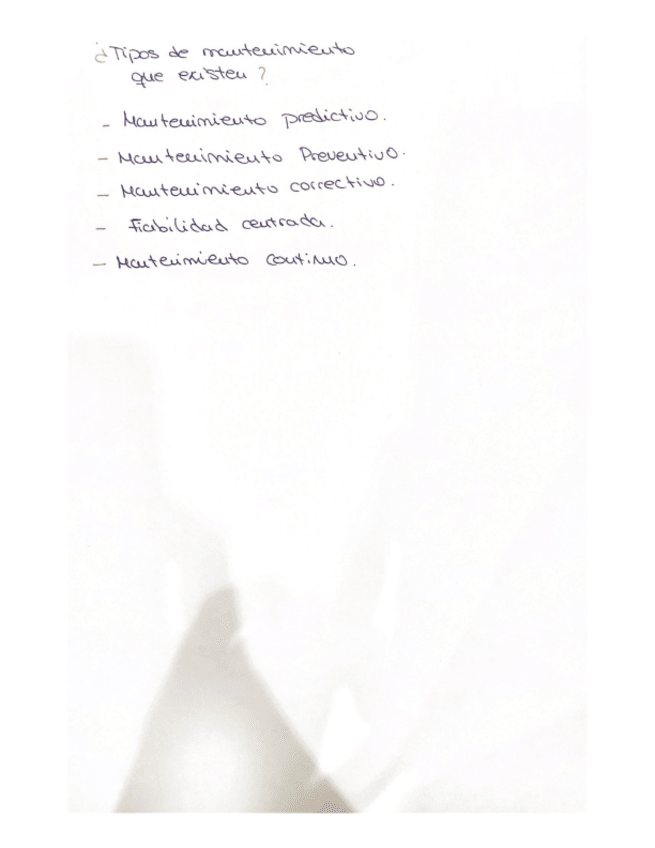 ¿Tipos de mantenimiento
que existen?
- Mantenimiento predictivo.
- Mantenimiento Preventivo.
- Mantenimiento correctivo.
- Fiabilidad centrada.
- Mantenimiento continuo.